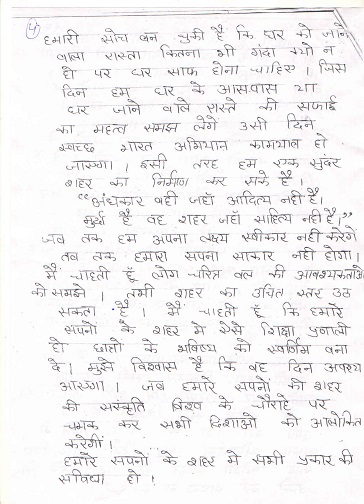 4
हमारी सोच बन चुकी है कि घर को जाने
वाला रास्ता कितना भी गंदा क्यो न
हो पर घर साफ होना चाहिए। जिस
दिन हम घर के आसपास या
घर जाने वाले रास्ते की सफाई
का महत्व समझ लेगे उसी दिन
स्वच्छ भारत अभियान कामयाब हो
जाएगा। इसी तरह हम एक सुंदर
शहर का निर्माण कर सके है।
"अंधकार वही जहाँ आदित्य नही है,
मुर्दा है वह शहर जहाँ साहित्य नही है,"
जब तक हम अपना लक्ष्य स्वीकार नही करेगे
तब तक हमारा सपना साकार नही होगा।
मैं चाहती हूँ लोग चरित्र बल की आवश्यकताओ
को समझे। तभी शहर का उचित स्तर उठ
सकता है। मैं चाहती हूँ कि हमारे
सपनो के शहर मे ऐसे शिक्षा प्रणाली
हो छात्रो के भविष्य को स्वर्णिम बना
दे। मुझे विश्वास है कि वह दिन अवश्य
आएगा। जब हमारे सपनो की शहर
की संस्कृति विश्व के चौराहे पर
चमक कर सभी दिशाओ को आलोकित
करेगी।
हमारे सपनो के शहर मे सभी प्रकार की
सुविधा हो।